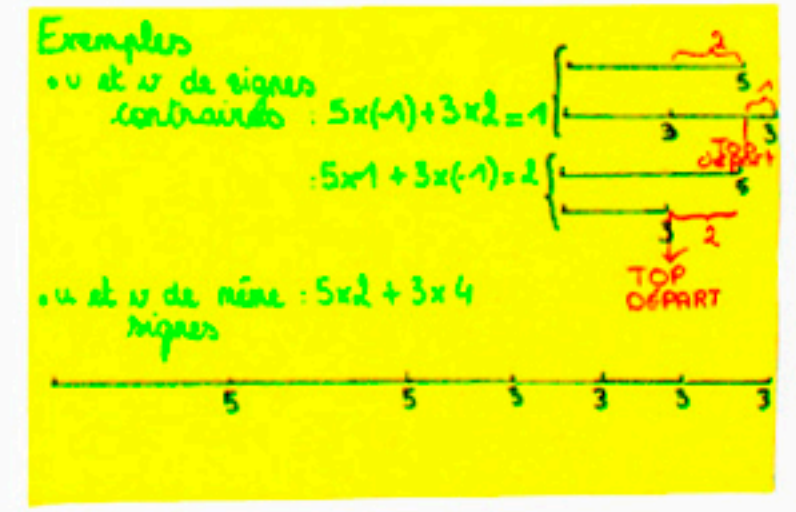 Exemples
• u et v de signes
contraires : 5x(-1)+3x2=1
2
5
1
3
3
TOP
départ
: 5x1 + 3x(-1)=2
5
3
2
TOP
DÉPART
• u et v de même : 5x2 + 3x4
signes
5
5
3
3
3
3